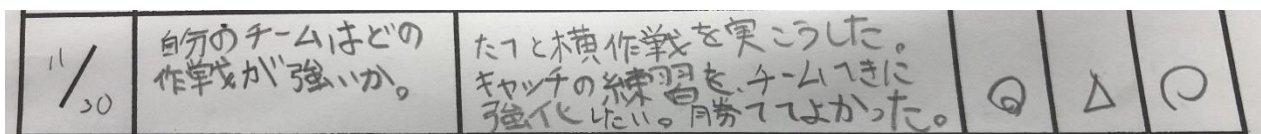 11/20
自分のチームはどの
作戦が強いか。
たてと横作戦を実こうした。
キャッチの練習を、チームてきに
強化したい。勝ててよかった。
◎ △ ○